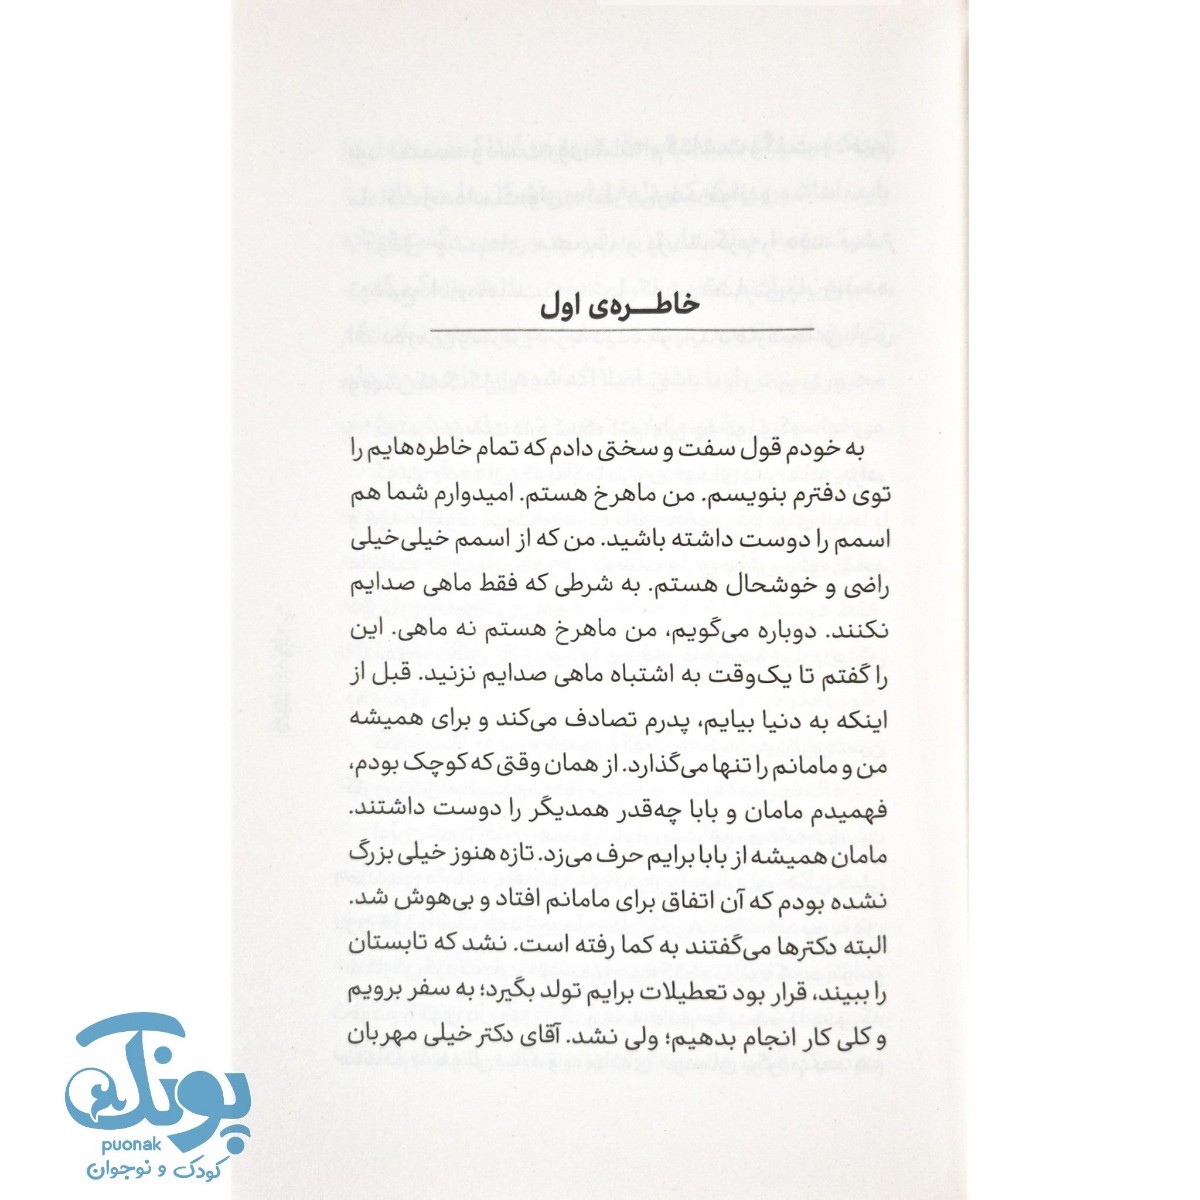 خاطره‌ی اول
به خودم قول سفت و سختی دادم که تمام خاطره‌هایم را
توی دفترم بنویسم. من ماهرخ هستم. امیدوارم شما هم
اسمم را دوست داشته باشید. من که از اسمم خیلی‌خیلی
راضی و خوشحال هستم. به شرطی که فقط ماهی صدایم
نکنند. دوباره می‌گویم، من ماهرخ هستم نه ماهی. این
را گفتم تا یک‌وقت به اشتباه ماهی صدایم نزنید. قبل از
اینکه به دنیا بیایم، پدرم تصادف می‌کند و برای همیشه
من و مامانم را تنها می‌گذارد. از همان وقتی که کوچک بودم،
فهمیدم مامان و بابا چه‌قدر همدیگر را دوست داشتند.
مامان همیشه از بابا برایم حرف می‌زد. تازه هنوز خیلی بزرگ
نشده بودم که آن اتفاق برای مامانم افتاد و بی‌هوش شد.
البته دکترها می‌گفتند به کما رفته است. نشد که تابستان
را ببیند، قرار بود تعطیلات برایم تولد بگیرد؛ به سفر برویم
و کلی کار انجام بدهیم؛ ولی نشد. آقای دکتر خیلی مهربان
پونک
puonak
کودک و نوجوان